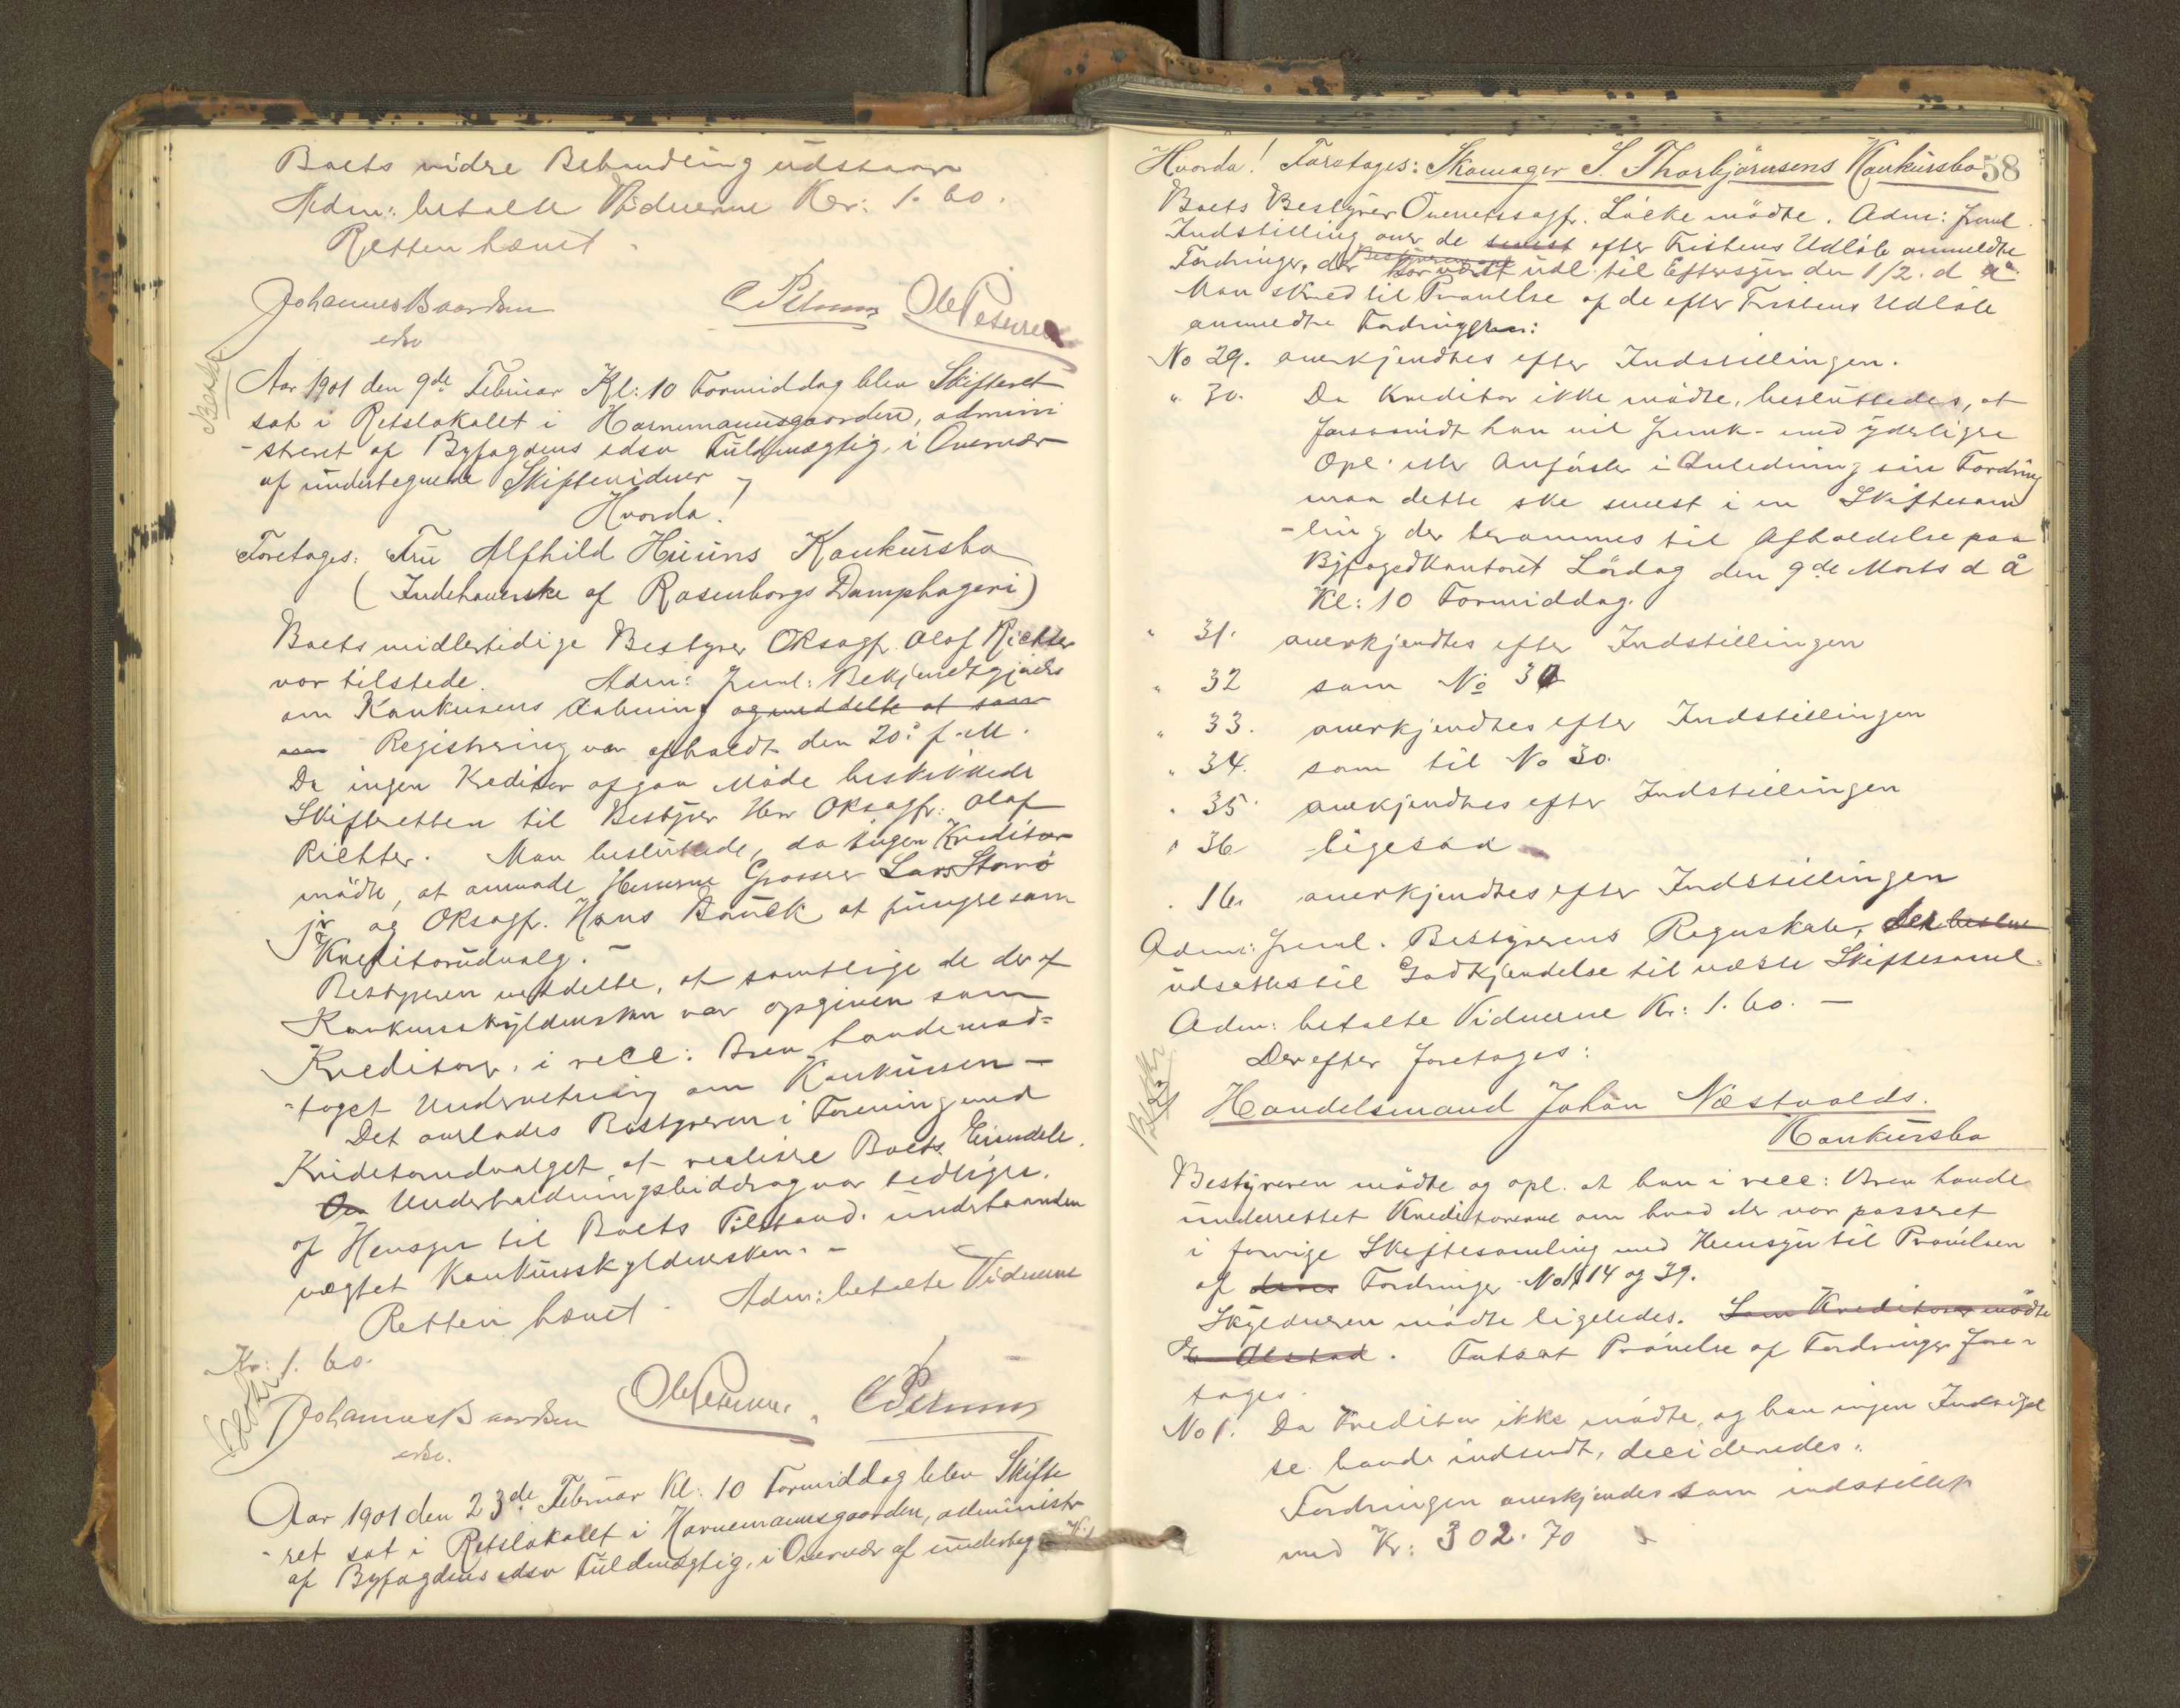 Boets vidre Behandling udstaar
Adm: betalte Vidnerne Kr: 1.60.
Retten hævet.
Johannes Baardsen
edsv
C Petersen Ole Petersen
Aar 1901 den 9de Februar Kl: 10 Formiddag blev Skifteret
sat i Retslokalet i Hornemannsgaarden, admini
-streret af Byfogdens edsv Fuldmægtig, i Overvær
af undertegnede Skiftevidner
Hvorda!
Foretages: Fru Alfhild Huuns Konkursbo
(Indehaverske af Rosenborgs Dampbageri)
Boets midlertidige Bestyrer ORsagf. Olaf Richter
var tilstede. Adm: freml: Bekjendtgjørelse
om Konkursens Aabning og meddelte at som
Registrering var afholdt den 20: f.M.
Da ingen Kreditor afgav Møde beskikkede
Skifteretten til Bestyrer Herr ORsagf: Olaf
Richter. Man besluttede, da ingen Kreditor
mødte, at anmode Herrerne Grosserer Lars Storrø
jr og ORsagf. Hans Bauck at fungere som
Kreditorudvalg.
Bestyreren meddelte, at samtlige de der af
Konkursskyldnersken var opgiven som
Kreditorer, i recc: Brev havde mod=
-taget Underretning om Konkursen —
Det overlodes Bestyreren i Forening med
Kreditorudvalget at realisere Boets Eiendele.
Om Underholdningsbidrag var tidligere
af Hensyn til Boets Tilstand. underhaanden
nægtet Konkursskyldnersken. -
Retten hævet. Adm: betalte Vidnerne
Kr: 1.60.
Johannes Baardsen
edsv.
Ole Petersen. C Petersen
Aar 1901 den 23de Februar Kl: 10 Formiddag blev Skifte
-ret sat i Retslokalet i Hornemannsgaarden, administr
af Byfogdens edsv Fuldmægtig, i Overvær af underteg
58
Hvorda! Foretages: Skomager S. Thorbjörnsens Konkursbo
Boets Bestyrer Overretssagf. Löcke mödte. Adm: freml.
Indstilling over de senest efter Fristens Udlöb anmeldte
Fordringer, der har været udl. til Eftersyn den 1/2. d a.
Man skred til Prøvelse af de efter Fristens Udlöb
anmeldte Fordringer:
No 29. anerkjendtes efter Indstillingen.
" 30. Da Kreditor ikke mödte, besluttedes, at
forsaavidt han vil fremk- med yderligere
Opl. eller Anførsler i Anledning sin Fordring
maa dette ske senest i en Skiftesam
-ling der berammes til Afholdelse paa
Byfogedkontoret Lördag den 9de Marts d å
Kl: 10 Formiddag.
" 31. anerkjendtes efter Indstillingen
" 32 som No 30
" 33. anerkjendtes efter Indstillingen
" 34. som til No 30.
" 35 anerkjendtes efter Indstillingen
" 36 ligesaa
" 16. anerkjendtes efter Indstillingen
Adm: freml. Bestyrerens Regnskab, der beslut
udsættes til Godkjendelse til næste Skiftesaml.
Adm: betalte Vidnerne Kr: 1.60. —
Derefter foretages:
Handelsmand Johan Næstvolds.
Konkursbo
Bestyreren mödte og opl. at han i recc: Brev havde
underrettet Kreditorerne om hvad der var passeret
i forrige Skiftesamling med Hensyn til Prövelsen
af deres Fordringer No 14 og 39.
Skyldneren mödte ligeledes. Som Kreditorer mödte
Alstad. Fortsat Prövelse af Fordringer fore-
tages.
No 1. Da Kreditor ikke mödte, og han ingen Indsigel
se havde indsendt, decideredes:
Fordringen anerkjendes som indstillet
med Kr: 302.70